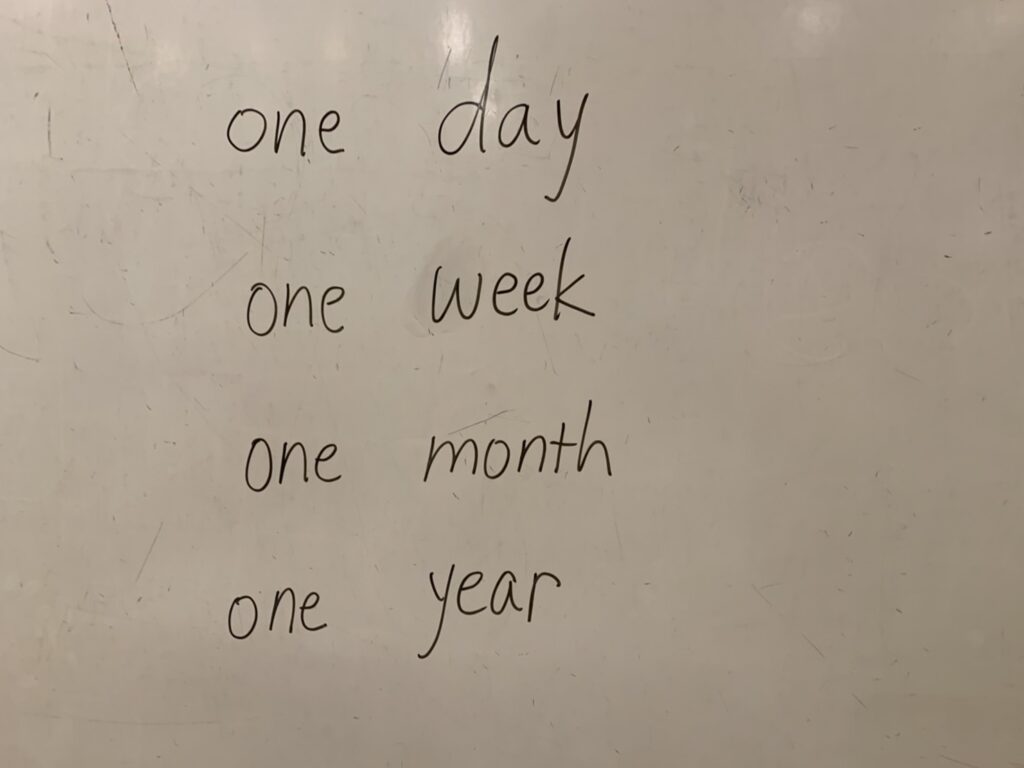 one day
one week
one month
one year